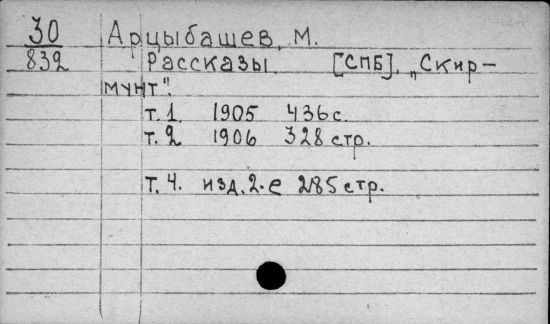 30 Арцыбашев, М.
832 Рассказы. [СПБ], „Скир-
мунт".
т. 1. 1905 436 с.
т. 2 1906 328 стр.
т. 4. изд. 2-е 285 стр.